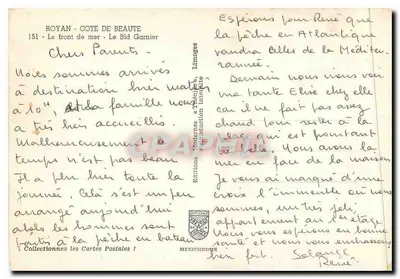 ROYAN - COTE DE BEAUTE
151 - Le front de mer - Le Bld Garnier
Chers Parents.
Nous sommes arrivés
à destination hier matin
à 10H, et la famille nous
a très bien accueillis.
Malheureusement le
temps n'est pas beau
Il a plu hier toute la
journée. Celà s'est un peu
arrangé aujourd'hui
alors les hommes sont
partis à la pêche en bateau
Collectionnez les Cartes Postales !
Editions "Théojac" Limoges
Reproduction interdite
MEXICHROME
Espérons pour René que
la pêche en Atlantique
vaudra celles de la Méditer
rannée.
Demain nous irons voir
ma tante Elise chez elle
car il ne fait pas assez
chaud pour rester à la
plage qui est pourtant
belle. Nous avons la
mer en face de la maison
Je vous ai marqué d'une
croix l'immeuble où nous
sommes, un très joli
appartement au 1er étage
Nous vous espérons en bonne
santé et nous vous embrassons
bien fort. Solange
René